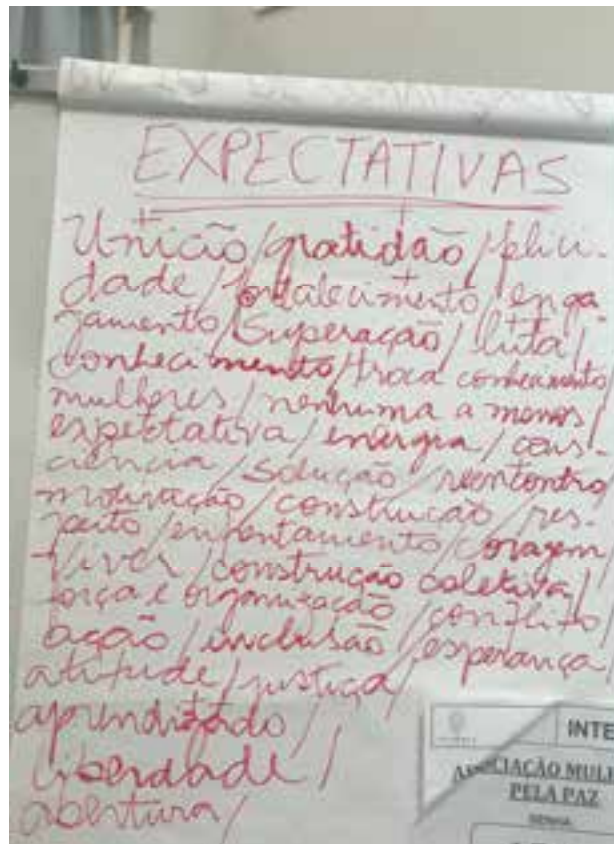 EXPECTATIVAS
União/gratidão/felici-
dade/fortalecimento/enga
jamento/Superação/luta/
conhecimento/troca conhecimento/
mulheres/nenhuma a menos/
expectativa/energia/cons-
ciência/solução/reencontro
motivação/construção/res-
peito/enfrentamento/coragem/
Viver/construção coletiva/
força e organização/conflito
ação/inclusão/esperança
atitude/justiça/
aprendizado/
liberdade/
abertura/
INTE
ASSOCIAÇÃO MULH
PELA PAZ